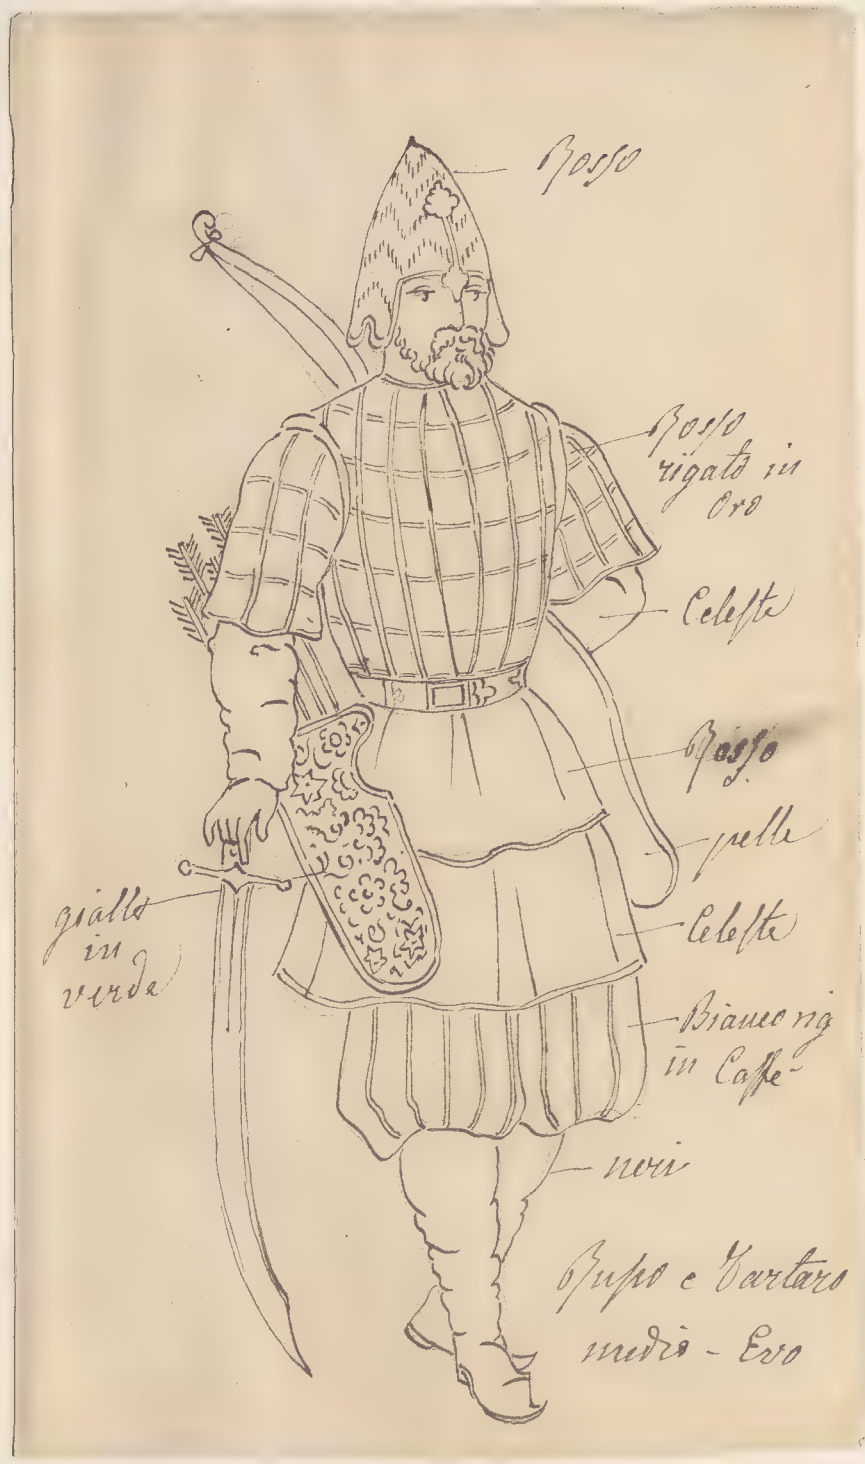 Rosso
Rosso
rigato in
Oro
Celeste
Rosso
pelle
giallo
in
verde
Celeste
Bianco rig
in Caffe
neri
Russo e Tartaro
medio - Evo